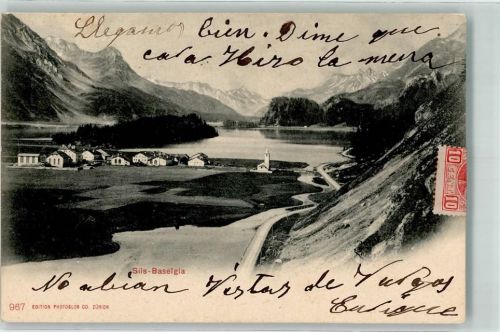 Llegamos bien. Dime que
cara Hizo la mena
10
CENT.
10
Sils-Baselgia
No abian Vistas de Burgos
Enrique
967 EDITION PHOTOGLOB CO. ZÜRICH